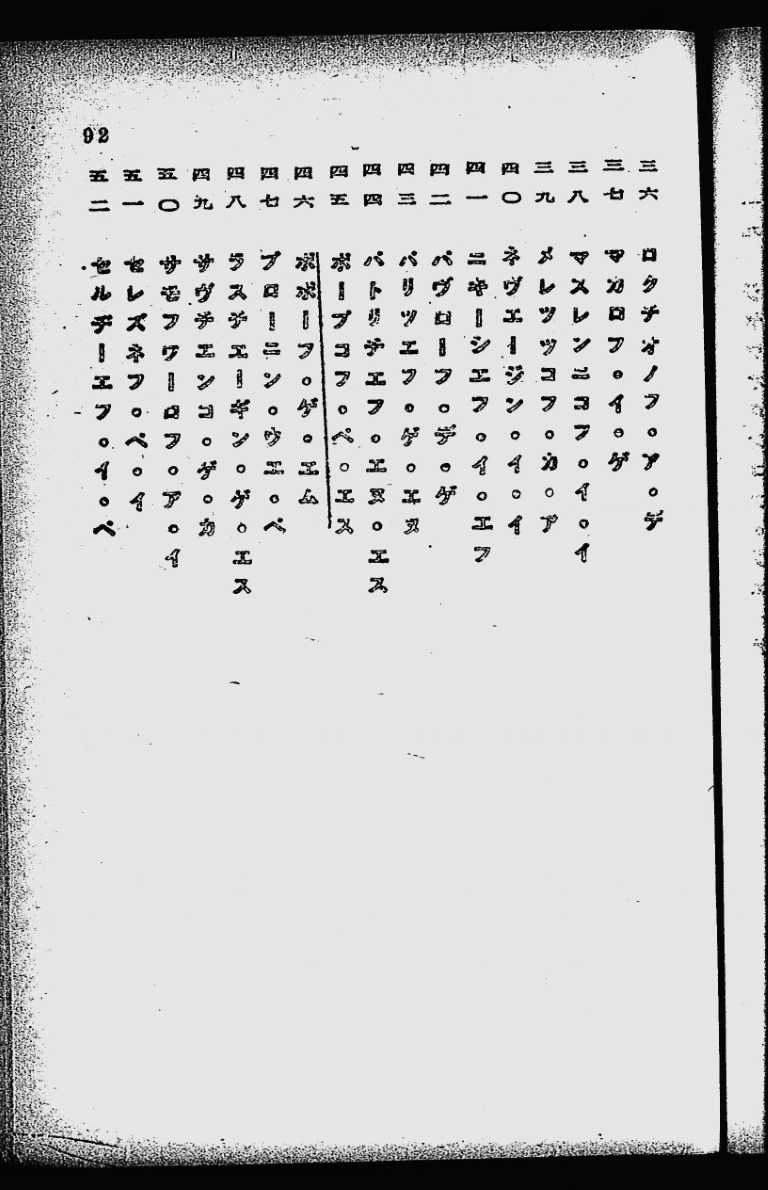 92
三六 ロクチオノフ。ア。デ
三七 マカロフ。イ。ゲ
三八 マスレンニコフ。イ。イ
三九 メレツツコフ。カ。ア
四〇 ネヴエージン。イ。イ
四一 ニキーシエフ。イ。エフ
四二 パヴローフ。デ。ゲ
四三 パリツエフ。ゲ。エヌ
四四 パトリチエフ。エヌ。エス
四五 ポープコフ。ペ。エス
四六 ポポーフ。ゲ。エム
四七 プローニン。ウエ。ペ
四八 ラスチエーギン。ゲ。エス
四九 サヴチエンコ。ゲ。カ
五〇 サモフワーロフ。ア。イ
五一 セレズネフ。ペ。イ
五二 セルヂーエフ。イ。ペ